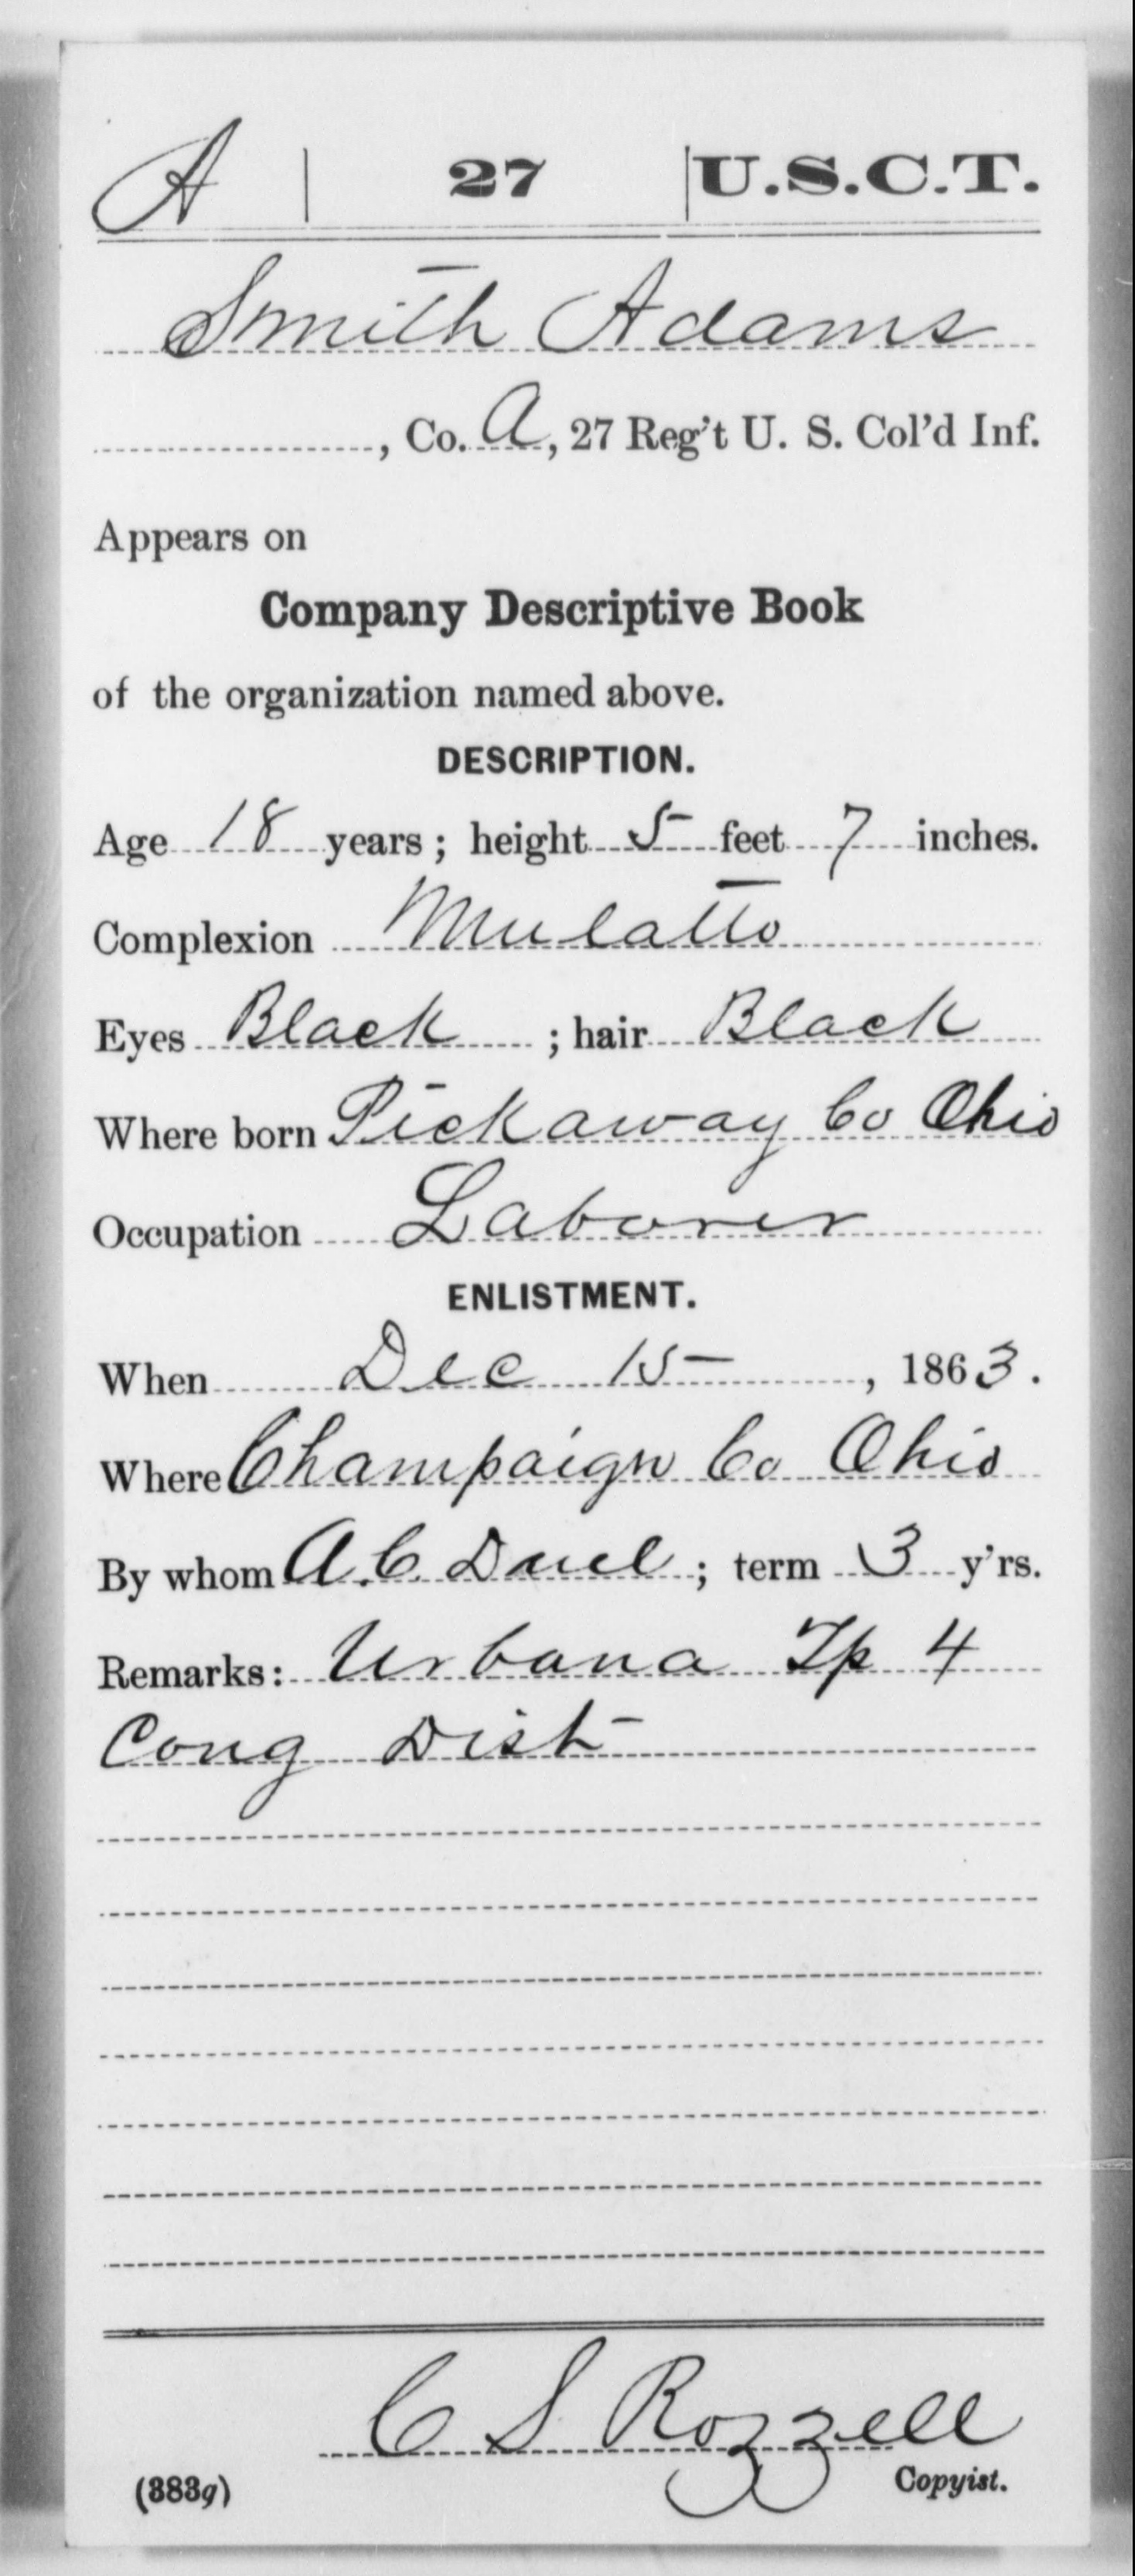 A | 27 | U.S.C.T.
Smith Adams
, Co. A, 27 Reg't U. S. Col'd Inf.
Appears on
Company Descriptive Book
of the organization named above.
DESCRIPTION.
Age 18 years; height 5 feet 7 inches.
Complexion Mulatto
Eyes Black ; hair Black
Where born Pickaway Co Ohio
Occupation Laborer
ENLISTMENT.
When Dec 15, 1863.
Where Champaign Co Ohio
By whom A.C. ; term 3 y'rs.
Remarks: Urbana Tp 4
Cong Dist
C S Rozzell
(383g) Copyist.